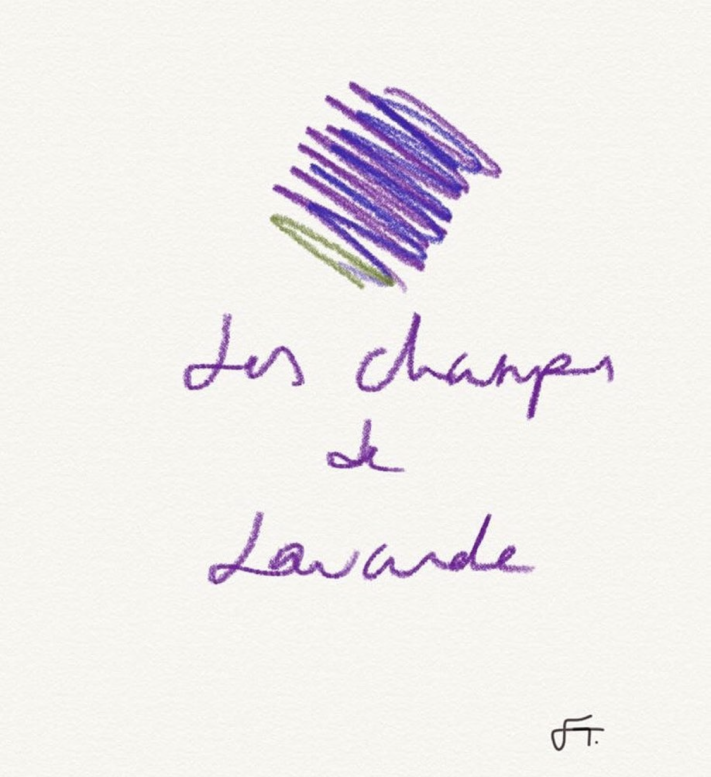 Les champs
de
Lavande
JT.